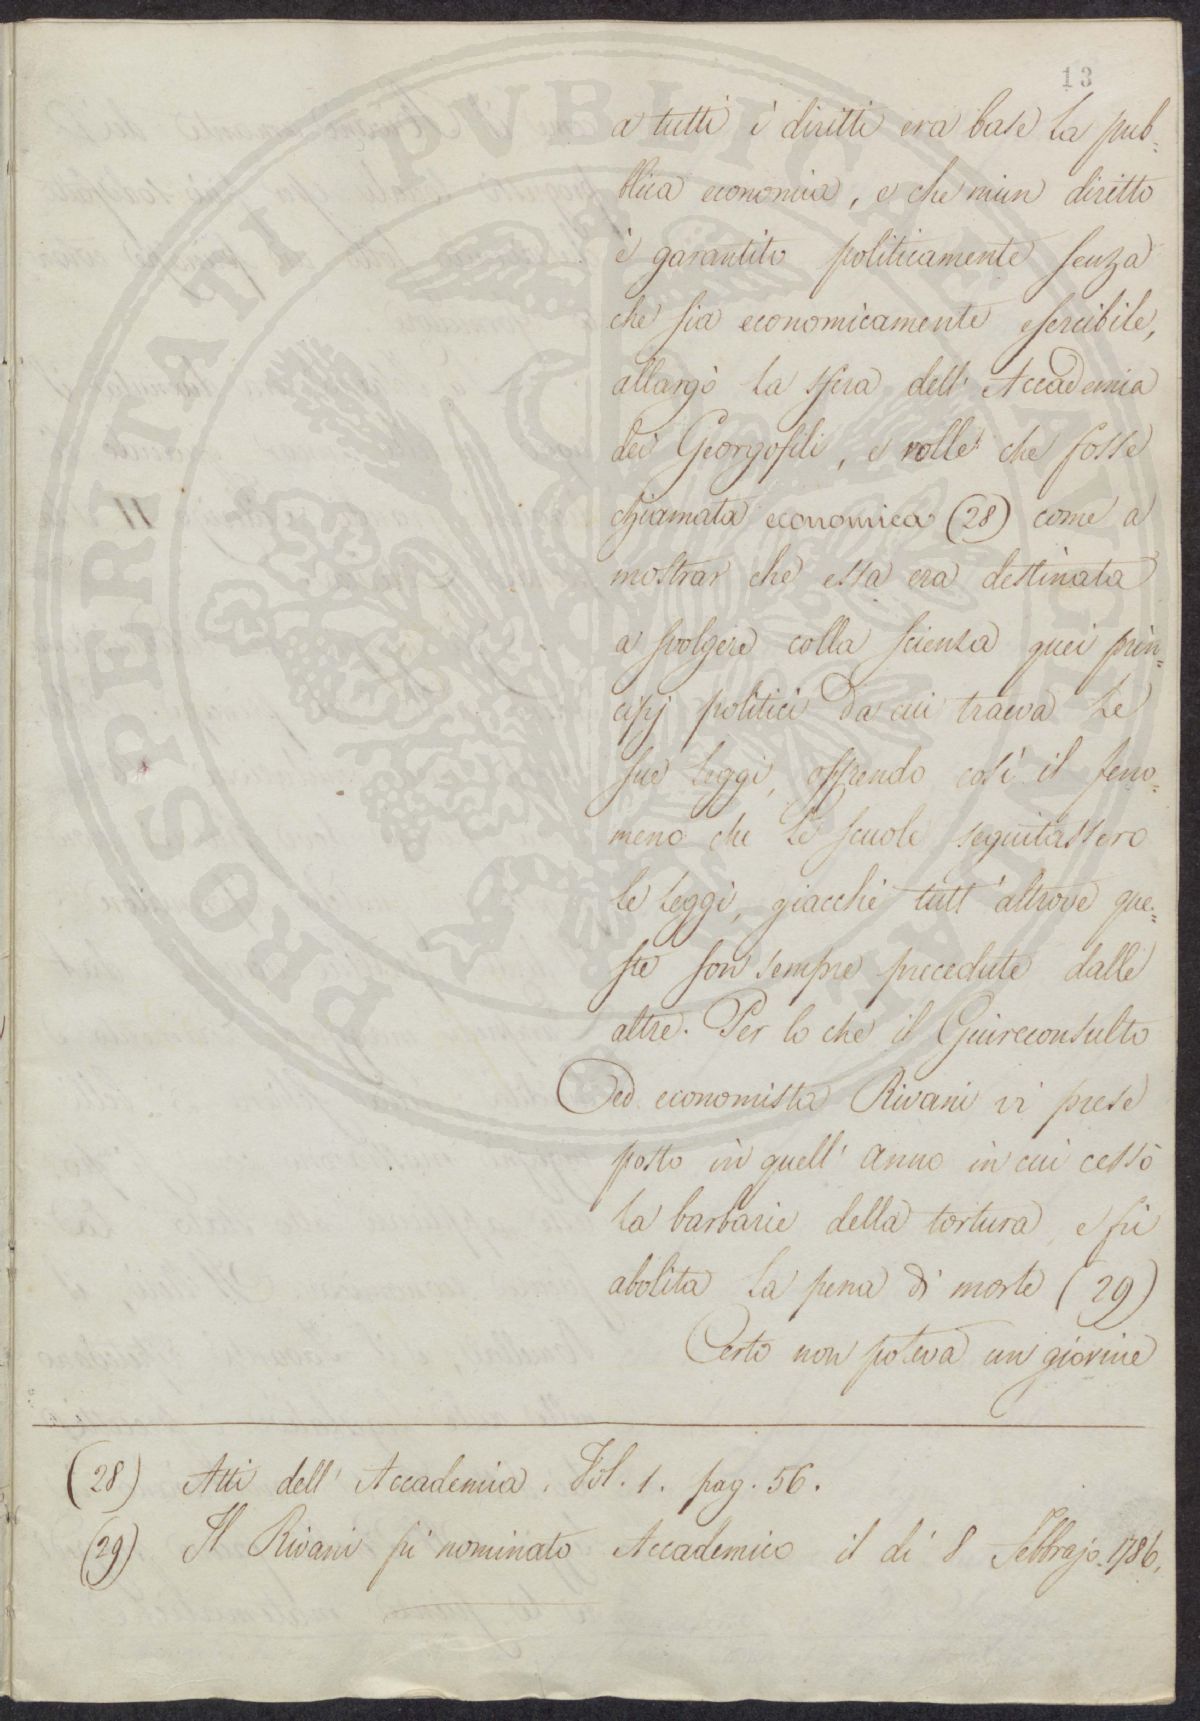 13
a tutti i diritti era base la pub=
blica economia, e che niun diritto
è garantito politicamente senza
che sia economicamente esercibile,
allargò la sfera dell'Accademia
dei Georgofili, e volle che fosse
chiamata economica (28) come a
mostrar che essa era destinata
a svolgere colla scienza quei prin=
cipj politici da cui traeva le
sue leggi, offrendo così il feno=
meno che le scuole seguitassero
le leggi, giacchè tutt'altrove que=
ste son sempre precedute dalle
altre. Per lo che il Giureconsulto
ed economista Rivani vi prese
posto in quell'anno in cui cessò
la barbarie della tortura, e fù
abolita la pena di morte (29)
Certo non poteva un giovine
(28) Atti dell'Accademia. Vol. 1. pag. 56.
(29) Il Rivani fù nominato Accademico il dì 8 Febbrajo 1786.
PROSPERITATI PVBLICAE AVGENDAE